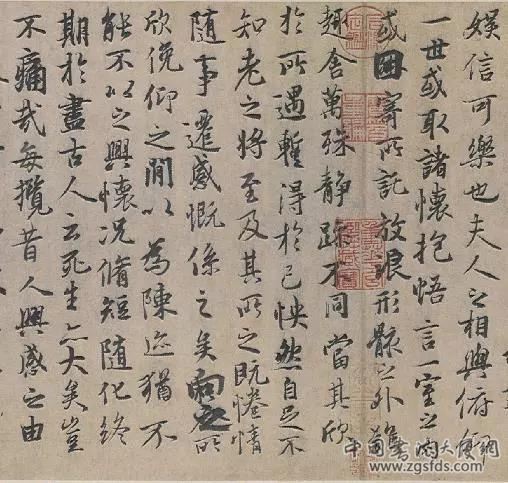 娛信可樂也夫人之相與俯仰
一世或取諸懷抱悟言一室之內
或因寄所託放浪形骸之外雖
趣舍萬殊靜躁不同當其欣
於所遇暫得於己怏然自足不
知老之將至及其所之既惓情
隨事遷感慨係之矣向之所
欣俛仰之閒以為陳迹猶不
能不以之興懷況脩短隨化終
期於盡古人云死生亦大矣豈
不痛哉每攬昔人興感之由
中國書法大師網
www.zgsfds.com